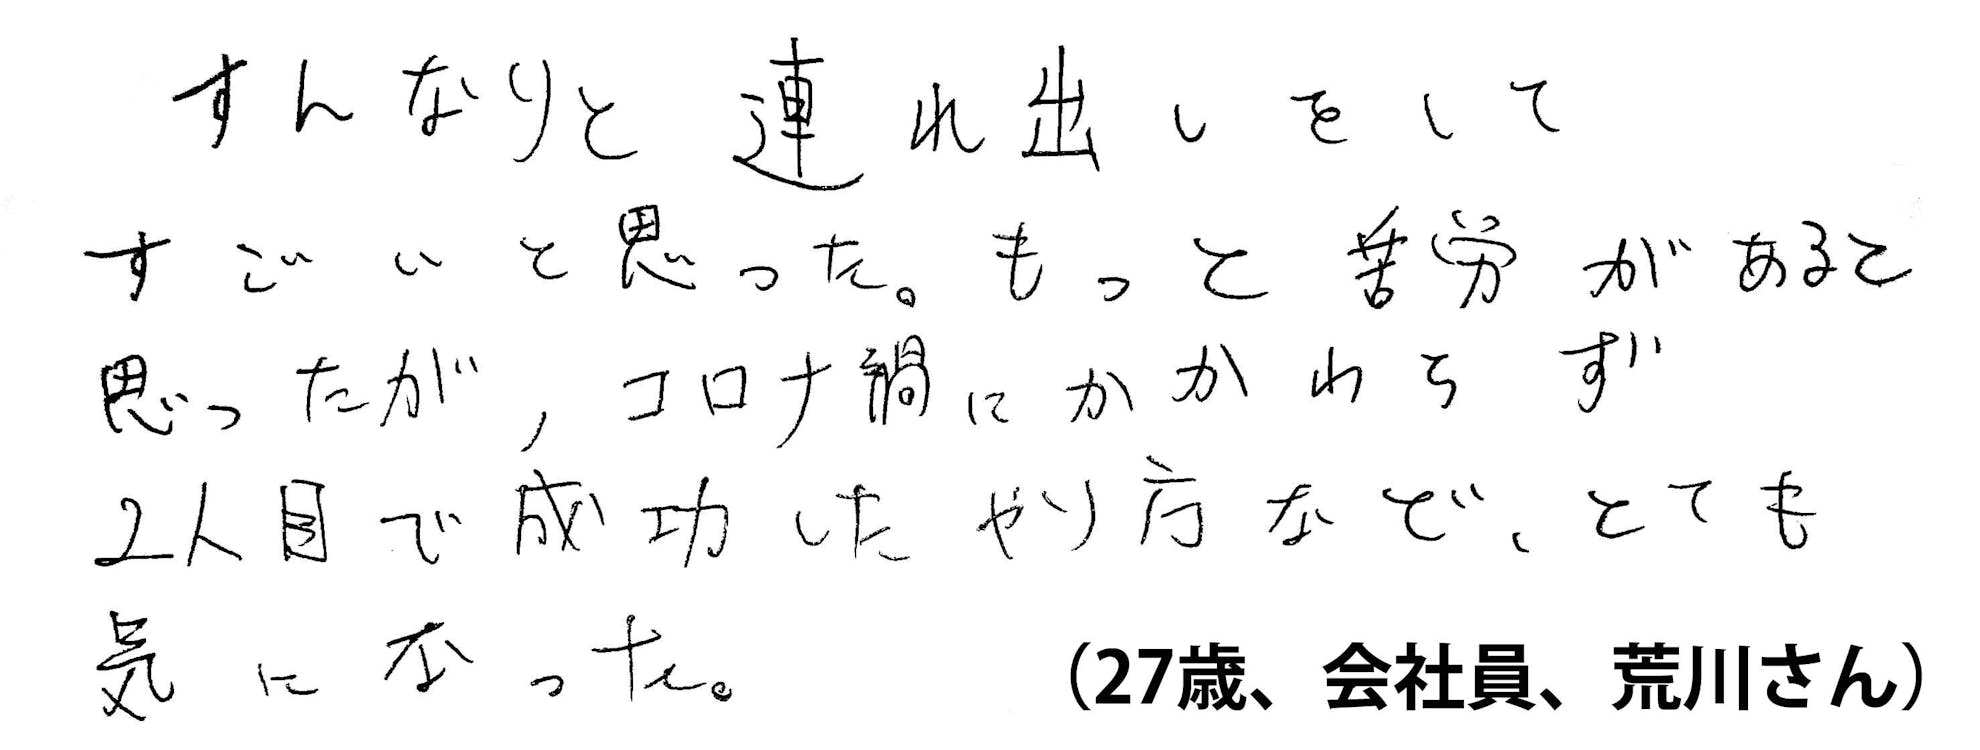 すんなりと連れ出しをして
すごいと思った。もっと苦労があると
思ったが，コロナ禍にかかわらず
2人目で成功したやり方など、とても
気になった。
（27歳、会社員、荒川さん）